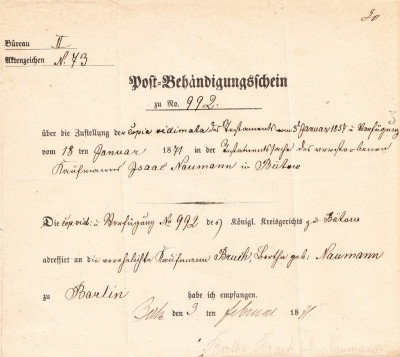 30
Büreau II
Aktenzeichen N. 73
Post-Behändigungsschein
zu No. 992.
über die Zustellung der copia vidimata des Testaments vom 5 Januar 1837 u Verfügung
vom 18 ten Januar 1871 in der Testamentssache des verstorbenen
Kaufmanns Isaac Naumann in Bütow
Die cop. vid: u Verfügung No 992 des Königl. Kreisgerichts zu Bütow
adressiert an die verehelichte Kaufmann Bruck, Bertha geb: Naumann
zu Berlin habe ich empfangen.
den 3 ten Februar 1871